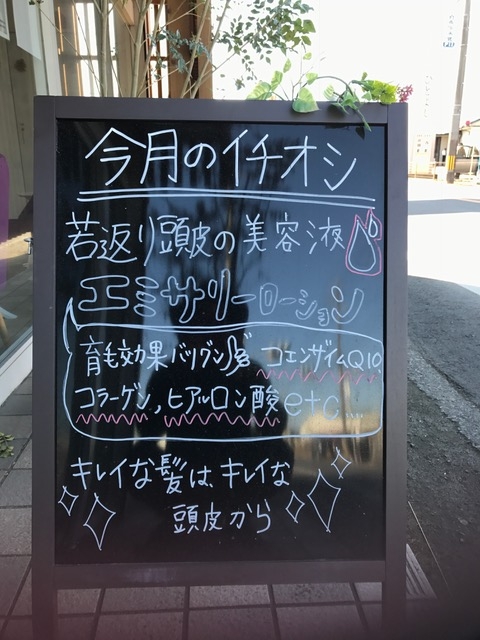 今月のイチオシ
若返り頭皮の美容液
エミサリーローション
育毛効果バツグン
コエンザイムQ10
コラーゲン,ヒアルロン酸etc....
キレイな髪は、キレイな
頭皮から